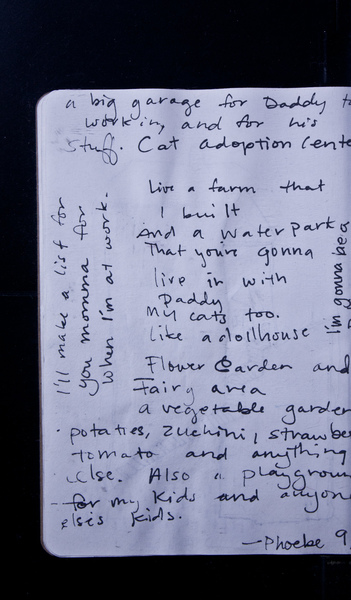 a big garage for Daddy to
work in, and for his
stuff. Cat adoption cente
Live a farm that
I built
And a waterpark
That you're gonna
live in with
Daddy
My cats too.
like a dollhouse
Flower Garden and
Fairy area
a vegetable garden
potaties, zuchini, strawbe
tomato and anything
else. Also a playgroun
for my kids and anyon
else's kids.
—Phoebe 9
I'll make a list for
you momma for
when I'm at work.
I'm gonna be a